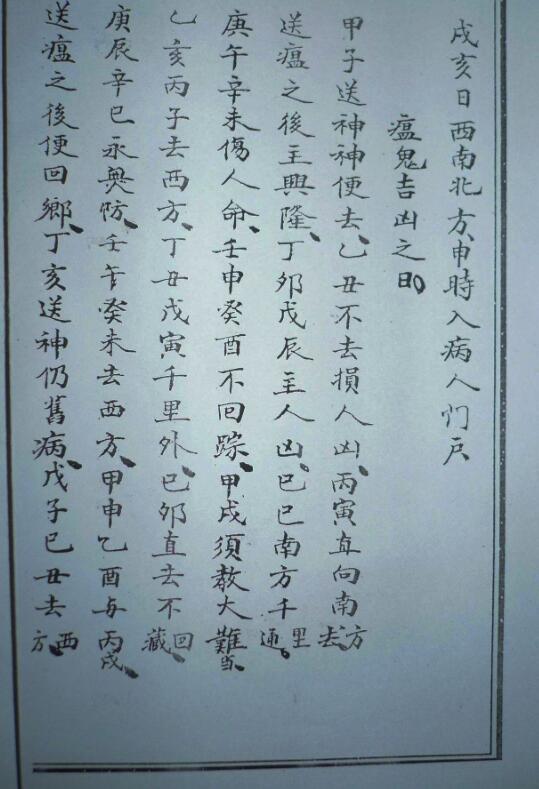 戌亥日西南北方、申時入病人们戶
瘟鬼吉凶之日
甲子送神神便去、乙丑不去損人凶、丙寅直向南方去、
送瘟之後主興隆、丁卯戊辰主人凶、巳巳南方千里通。
庚午辛未傷人命、壬申癸酉不回踪、甲戌須教大難當、
乙亥丙子去西方、丁丑戊寅千里外、巳卯直去不回藏、
庚辰辛巳永無妨、壬午癸未去西方、甲申乙酉与丙戌、
送瘟之後便回鄉、丁亥送神仍舊病、戊子巳丑去西方、